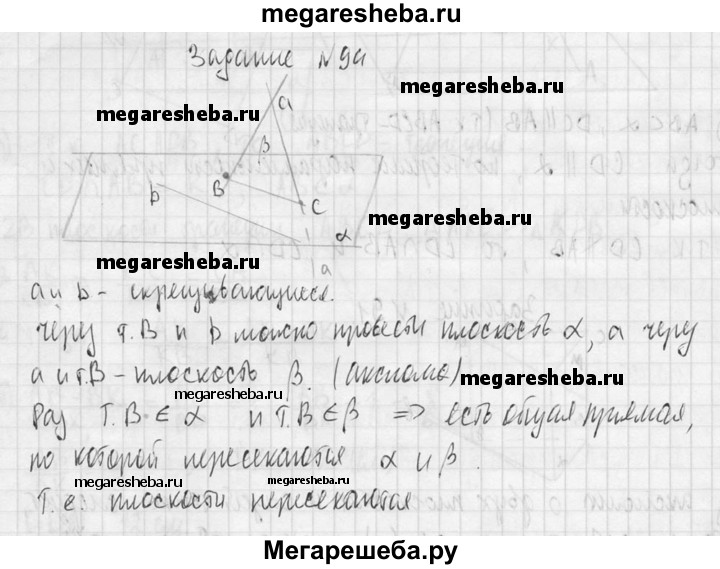 megaresheba.ru
Задание N 94
megaresheba.ru
megaresheba.ru
a
β
B
b
C
megaresheba.ru
α
a
a и b - скрещивающиеся.
через т. B и b можно провести плоскость α, а через
a и т. B - плоскость β. (аксиома)
megaresheba.ru
megaresheba.ru
Раз т. B ∈ α и т. B ∈ β => есть общая прямая,
по которой пересекаются α и β.
megaresheba.ru
megaresheba.ru
Т. е. плоскости пересекаются
Мегарешеба.ру